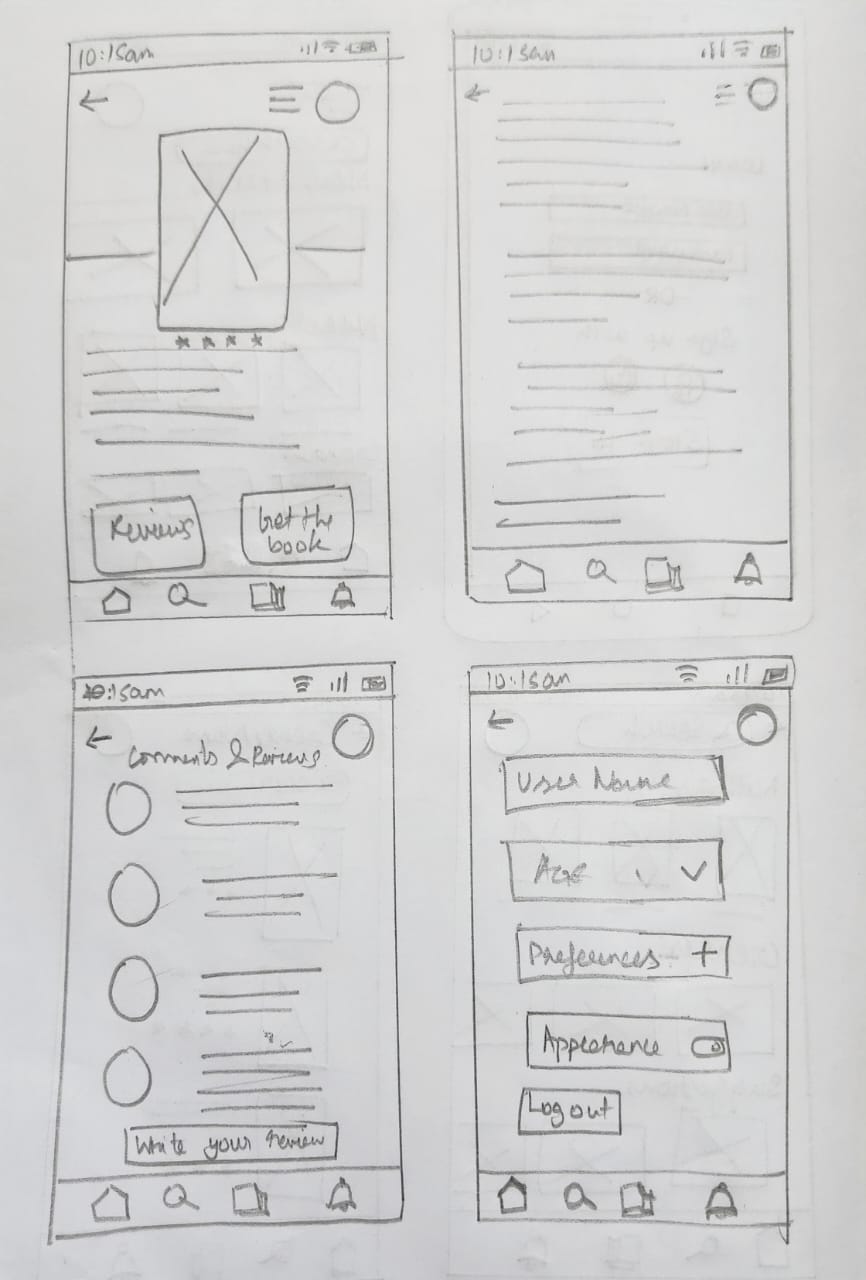 10:15am
Reviews
Get the
book
10:15am
10:15am
Comments & Reviews
Write your review
10:15am
User Name
Age
Preferences +
Appearance
Log out